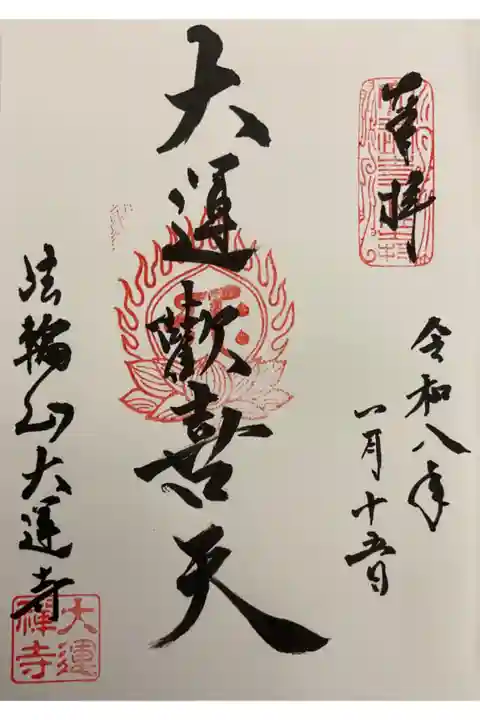 奉拝
令和八年
一月十五日
大運歡喜天
法輪山大運寺
大運
禪寺